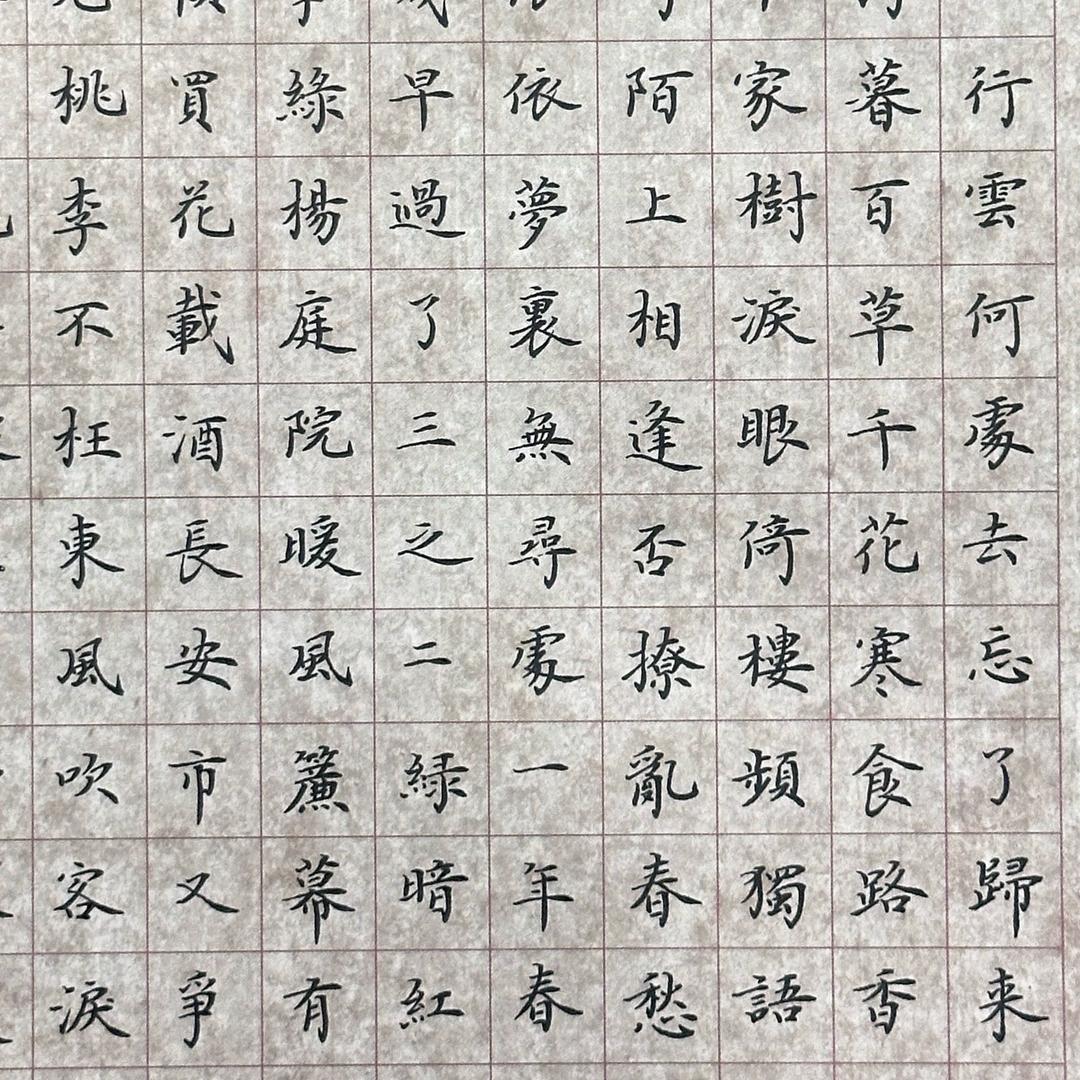 行雲何處去忘了歸来
暮百草千花寒食路香
家樹淚眼倚樓頻獨語
陌上相逢否撩亂春愁
依夢裏無尋處一年春
早過了三之二緑暗紅
綠楊庭院暖風簾幕有
買花載酒長安市又爭
桃李不枉東風吹客淚